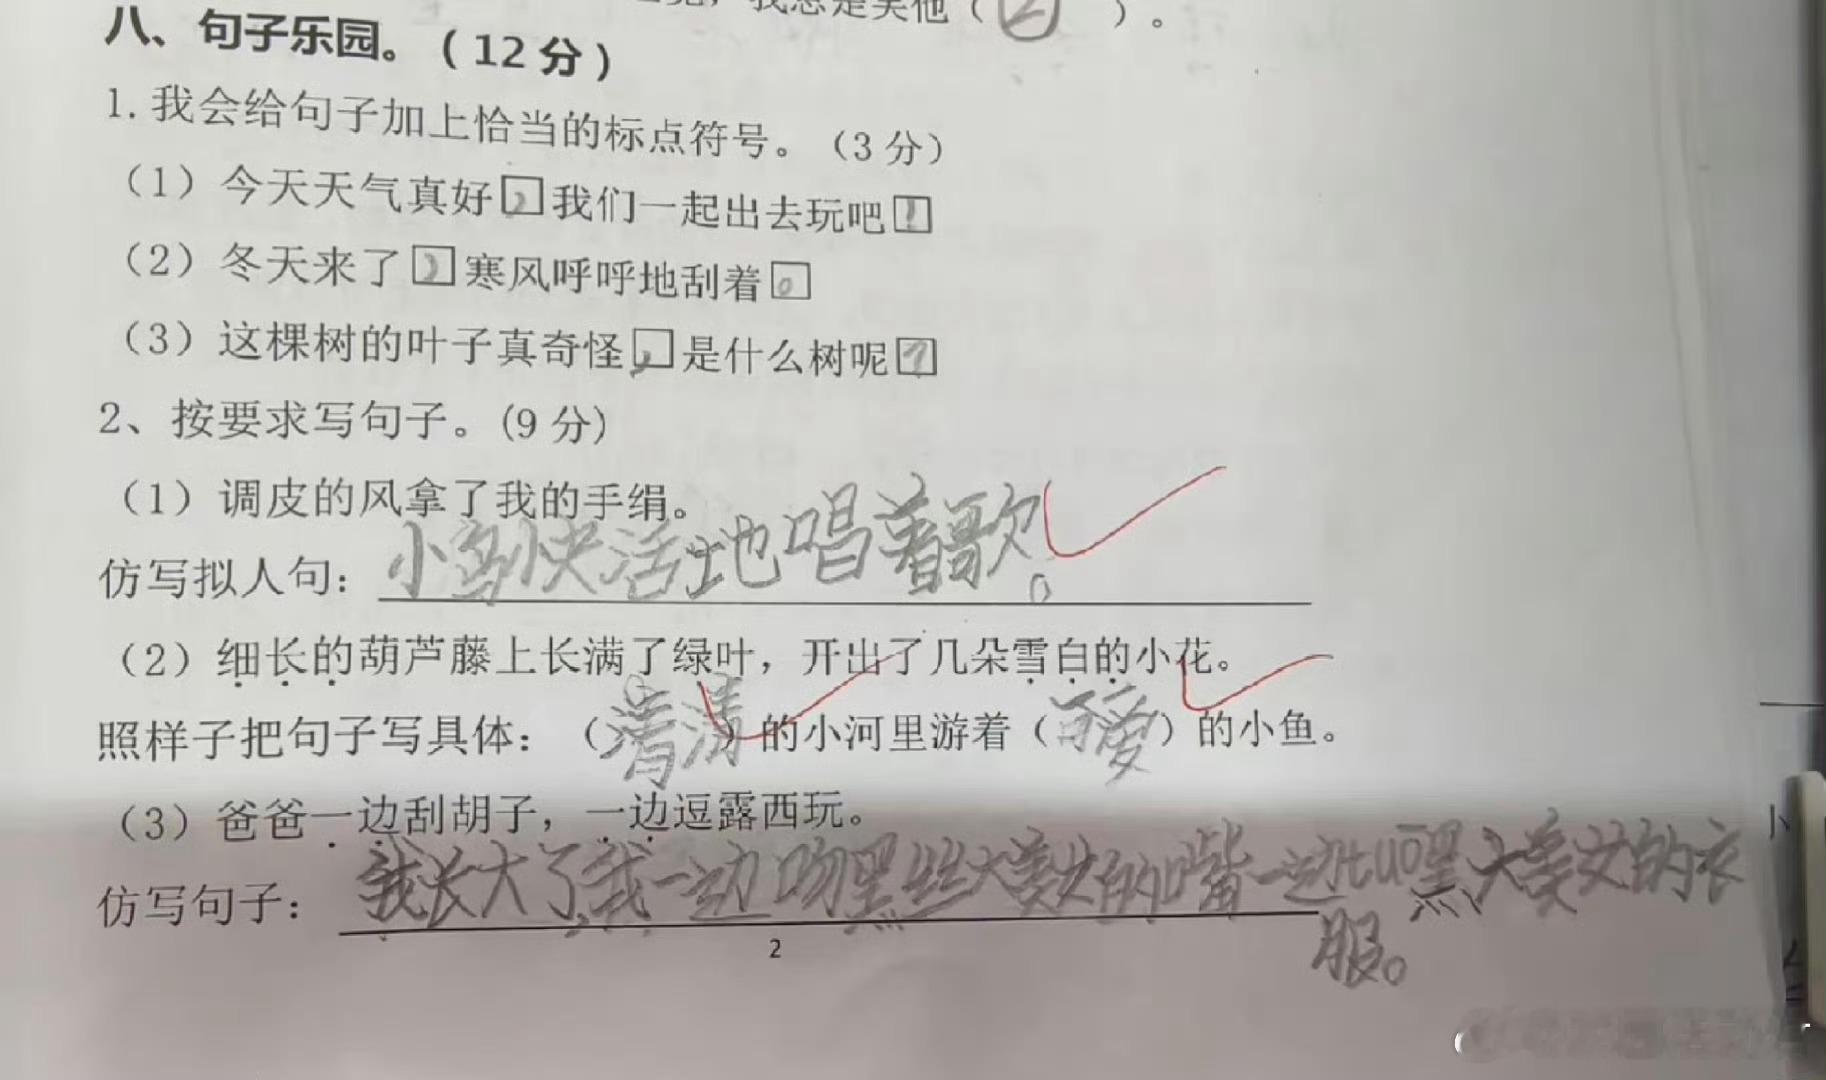 ，我总是笑他（②）。
八、句子乐园。（12分）
1.我会给句子加上恰当的标点符号。（3分）
（1）今天天气真好，我们一起出去玩吧！
（2）冬天来了，寒风呼呼地刮着。
（3）这棵树的叶子真奇怪，是什么树呢？
2、按要求写句子。(9分)
（1）调皮的风拿了我的手绢。
仿写拟人句：小鸟快活地唱着歌。
（2）细长的葫芦藤上长满了绿叶，开出了几朵雪白的小花。
照样子把句子写具体：（清清）的小河里游着（可爱）的小鱼。
（3）爸爸一边刮胡子，一边逗露西玩。
仿写句子：我长大了我一边吻黑丝大美女的嘴一边黑大美女的衣
服。
2